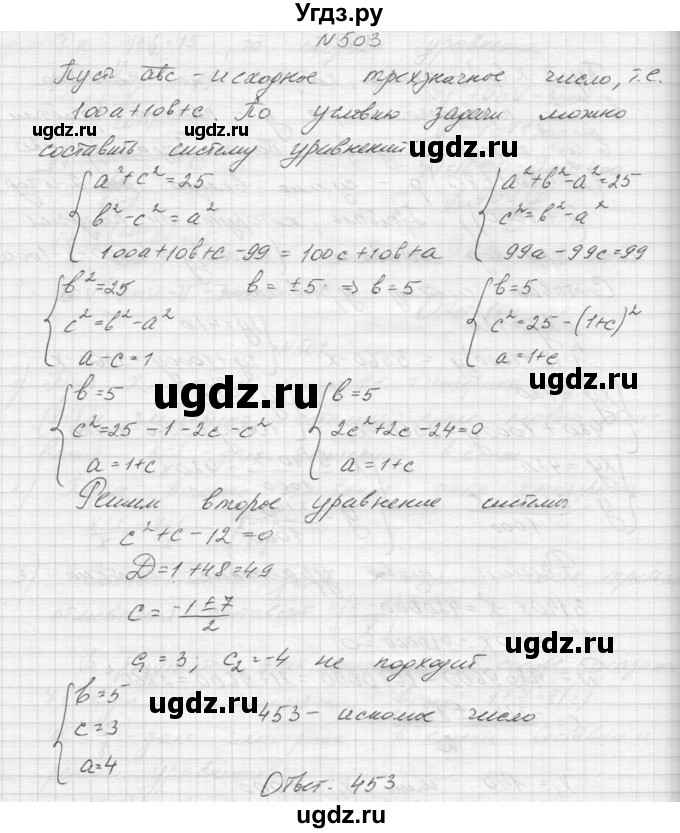 Угдз.ру
N503
Пусть abc - исходное трехзначное число, т.е.
100a+10b+c. По условию задачи можно
ugdz.ru ugdz.ru
составить систему уравнений
ugdz.ru
a²+c²=25
b²-c²=a²
100a+10b+c-99=100c+10b+a
a²+b²-a²=25
c²=b²-a²
99a-99c=99
b²=25
c²=b²-a²
a-c=1
b=±5 ⇒ b=5
b=5
c²=25-(1+c)²
a=1+c
ugdz.ru
ugdz.ru
b=5
c²=25-1-2c-c²
a=1+c
b=5
2c²+2c-24=0
a=1+c
Решим второе уравнение системы
c²+c-12=0
D=1+48=49
c=-1±7/2
ugdz.ru
c₁=3; c₂=-4 не подходит
ugdz.ru
b=5
c=3
a=4
453 - искомое число
Ответ: 453
ugdz.ru